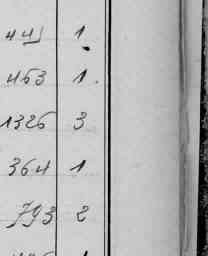 441 1
463 1.
1326 3
364 1
793 2